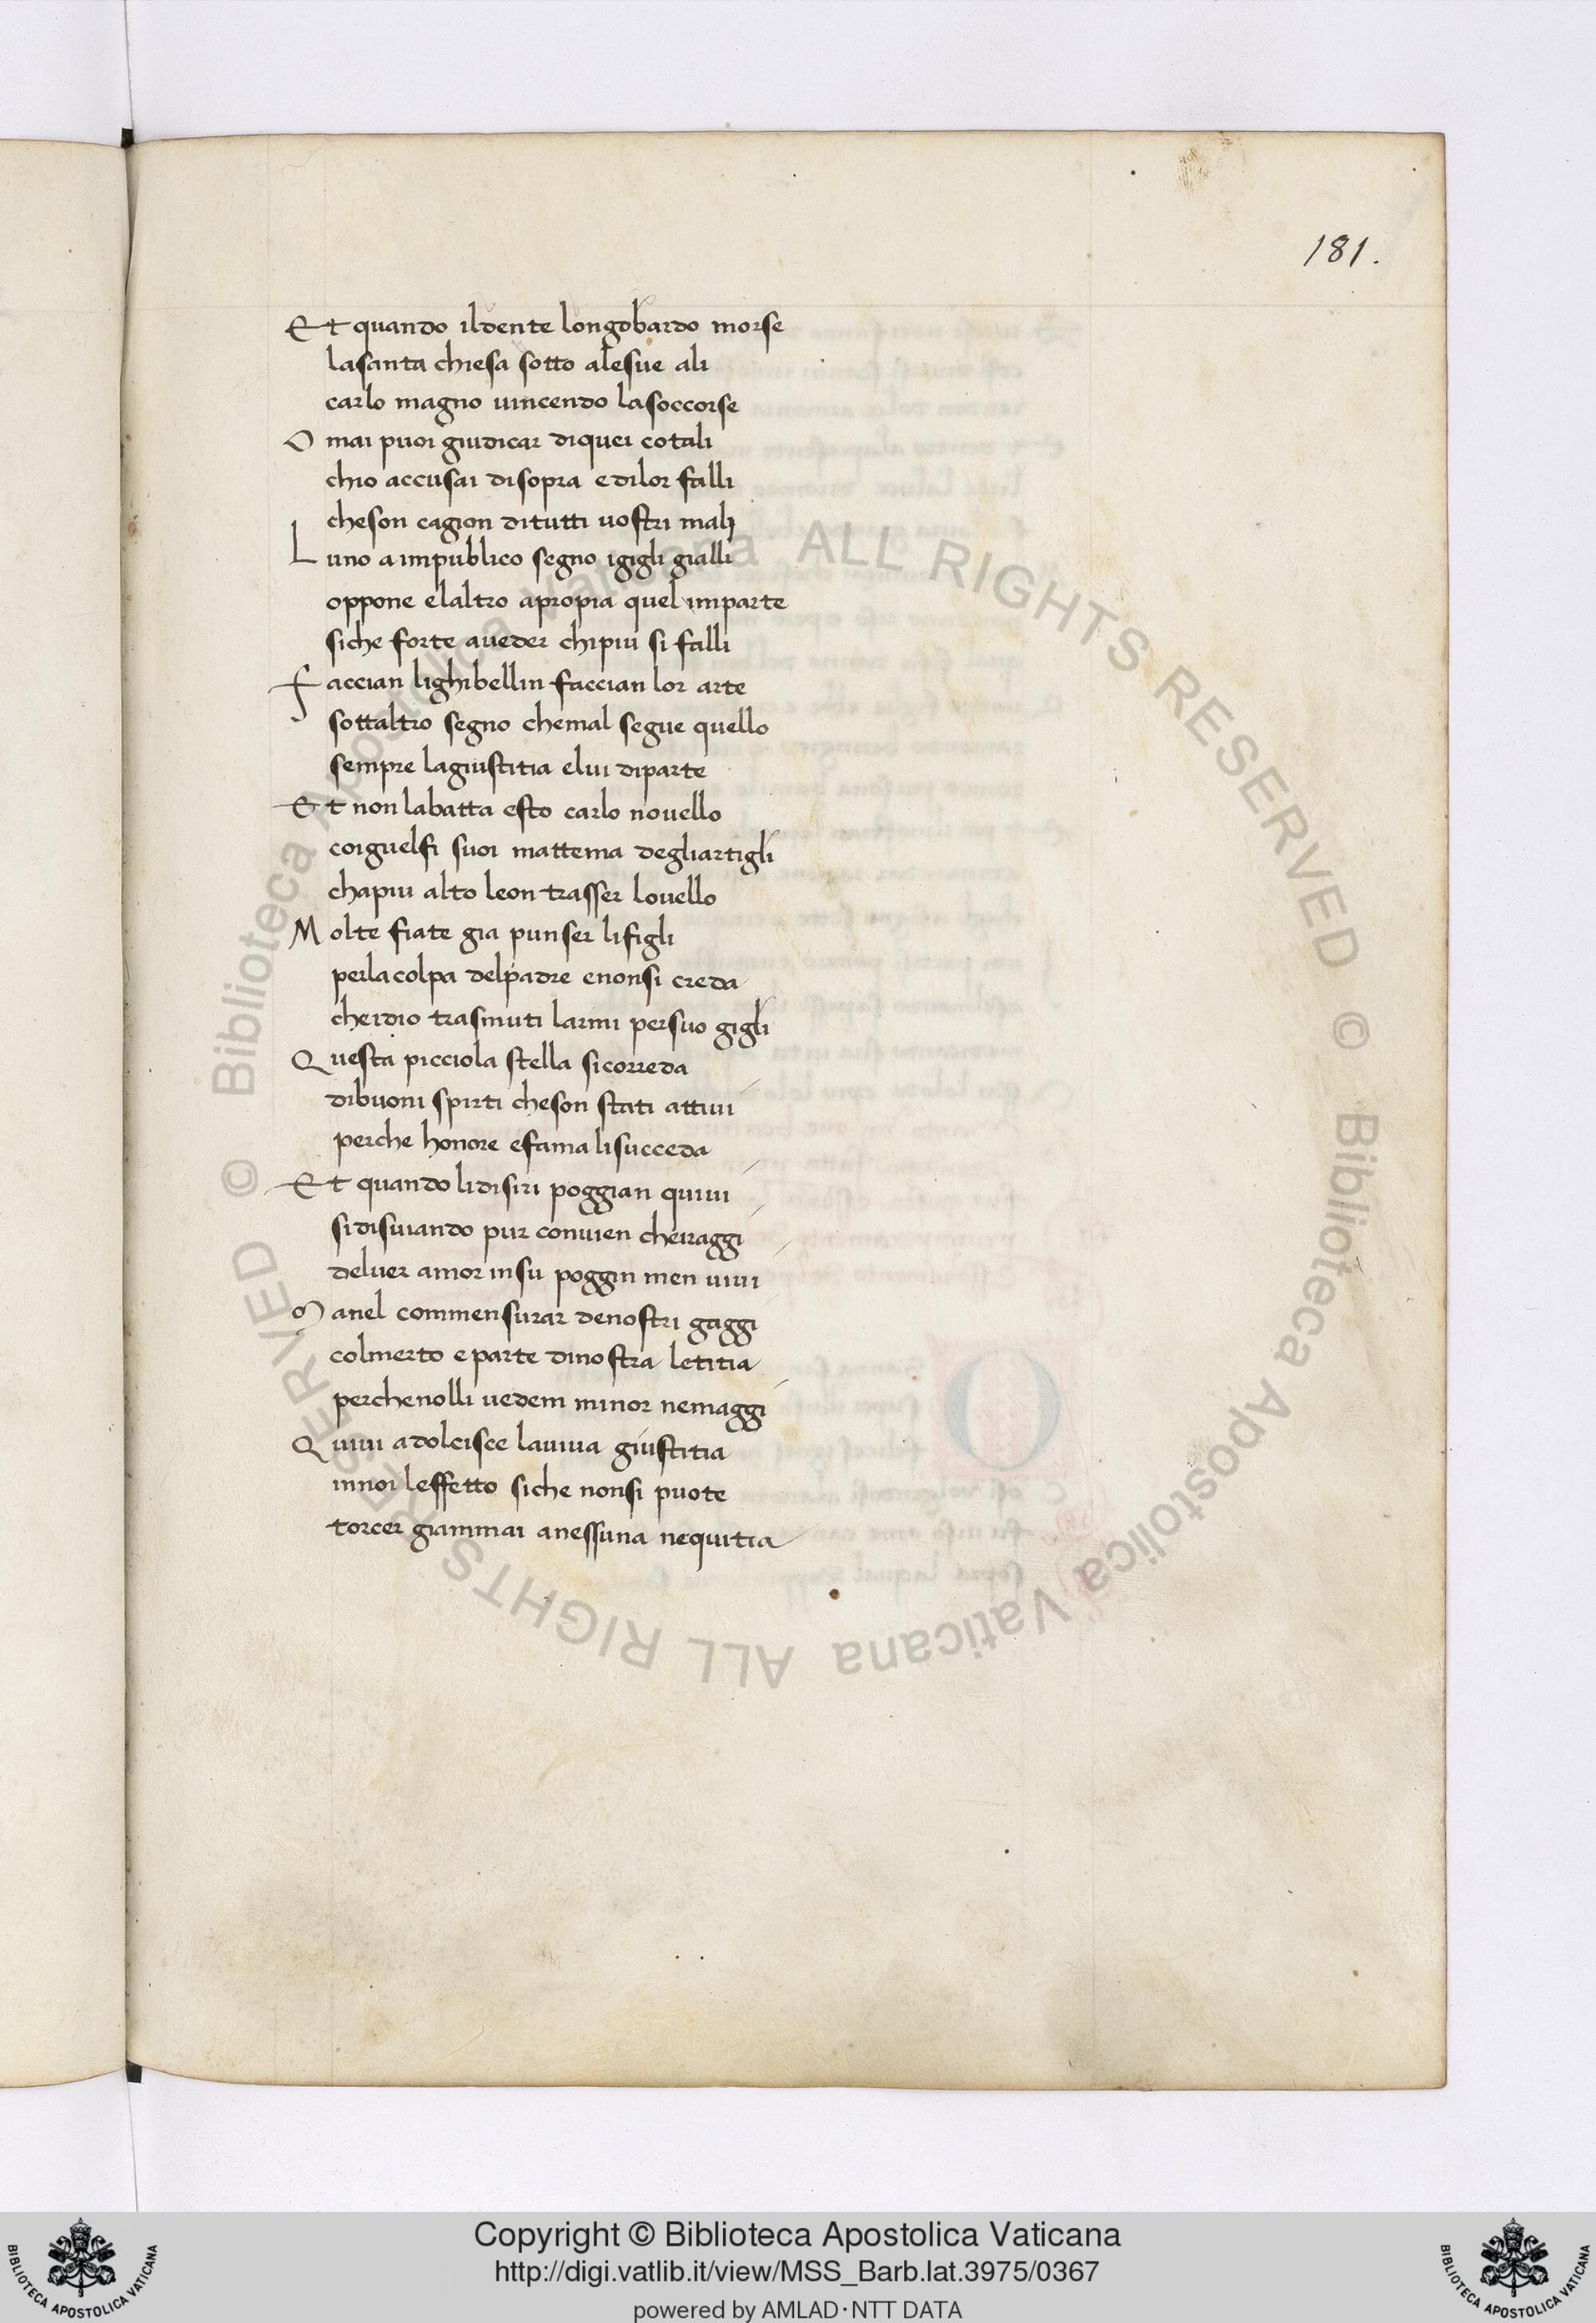 181.
Et quando ildente longobardo morse
lasanta chiesa sotto alesue ali
carlo magno uincendo lasoccorse
O mai puoi giudicar diquei cotali
chio accusai disopra edilor falli
cheson cagion ditutti uostri mali
L uno a impublico segno igigli gialli
oppone elaltro apropia quel imparte
siche forte aueder chipiu si falli
F accian lighibellin faccian lor arte
sottaltro segno chemal segue quello
sempre lagiustitia elui diparte
Et non labatta esto carlo nouello
coiguelfi suoi mattema degliartigli
chapiu alto leon trasser louello
M olte fiate gia punser lifigli
perlacolpa delpadre enonsi creda
cheidio trasmuti larmi persuo gigli
Q uesta picciola stella sicorreda
dibuoni spirti cheson stati attiui
perche honore efama lisucceda
Et quando lidisiri poggian quiui
sidisuiando pur conuien cheiraggi
deluer amor insu poggin men uiui
M anel commensurar denostri gaggi
colmerto eparte dinostra letitia
perchenolli uedem minor nemaggi
Q uiui adolcisce lauiua giustitia
innoi leffetto siche nonsi puote
torcer giammai anessuna nequitia
© Biblioteca Apostolica Vaticana ALL RIGHTS RESERVED © Biblioteca Apostolica Vaticana ALL RIGHTS RESERVED
Copyright © Biblioteca Apostolica Vaticana
http://digi.vatlib.it/view/MSS_Barb.lat.3975/0367
powered by AMLAD·NTT DATA
BIBLIOTECA APOSTOLICA VATICANA
BIBLIOTECA APOSTOLICA VATICANA